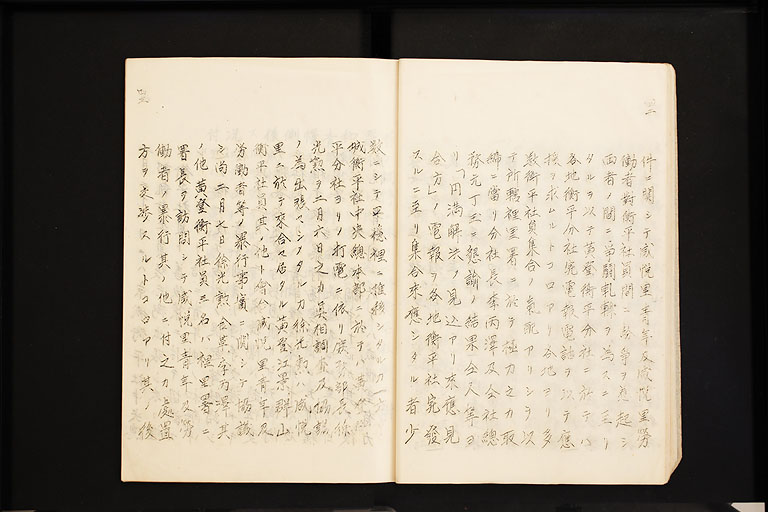 件ニ関シテ咸悦里青年及咸悦里労
働者対衡平社員間ニ紛争ヲ惹起シ
両者ノ間ニ闘乱軋轢ヲ為スニ至リ
タルヲ以テ黄登衡平分社ニ於テハ
各地衡平分社宛電報電話ヲ以テ応
援ヲ求ムルトコロアリ各地ヨリ多
数衡平社員集合ノ気配アリシヲ以
テ所轄裡里署ニ於テ極力之カ取
締ニ当リ分社長李丙澤及会社総
務元丁玉ニ懇諭ノ結果仝人等ヨ
リ「円満解決ノ見込アリ来応見
合方」ノ電報ヲ各地衡平社宛発
スルニ至リ集合来応シタル者少
数ニシテ平穏裡ニ推移シタルカ
城衡平社中央総本部ニ於テハ黄登
平分社ヨリノ打電ニ依リ
光勲ヲ二月六日之カ真相調査及協議
ノ為出張セシメタルカ徐光勲ハ咸悦
里ニ於テ来合セ居タル黄登江景群山
衡平社員其ノ他ト会合咸悦里青年及
労働者等ノ暴行事実ニ関シテ協議
シ尚二月七日徐光勲李丙澤其
ノ他黄登衡平社員三名ハ裡里署ニ
署長ヲ訪問シテ咸悦里青年及労
働者ノ暴行其ノ他ニ付之カ処置
方ヲ交渉スルトコロアリ其ノ後